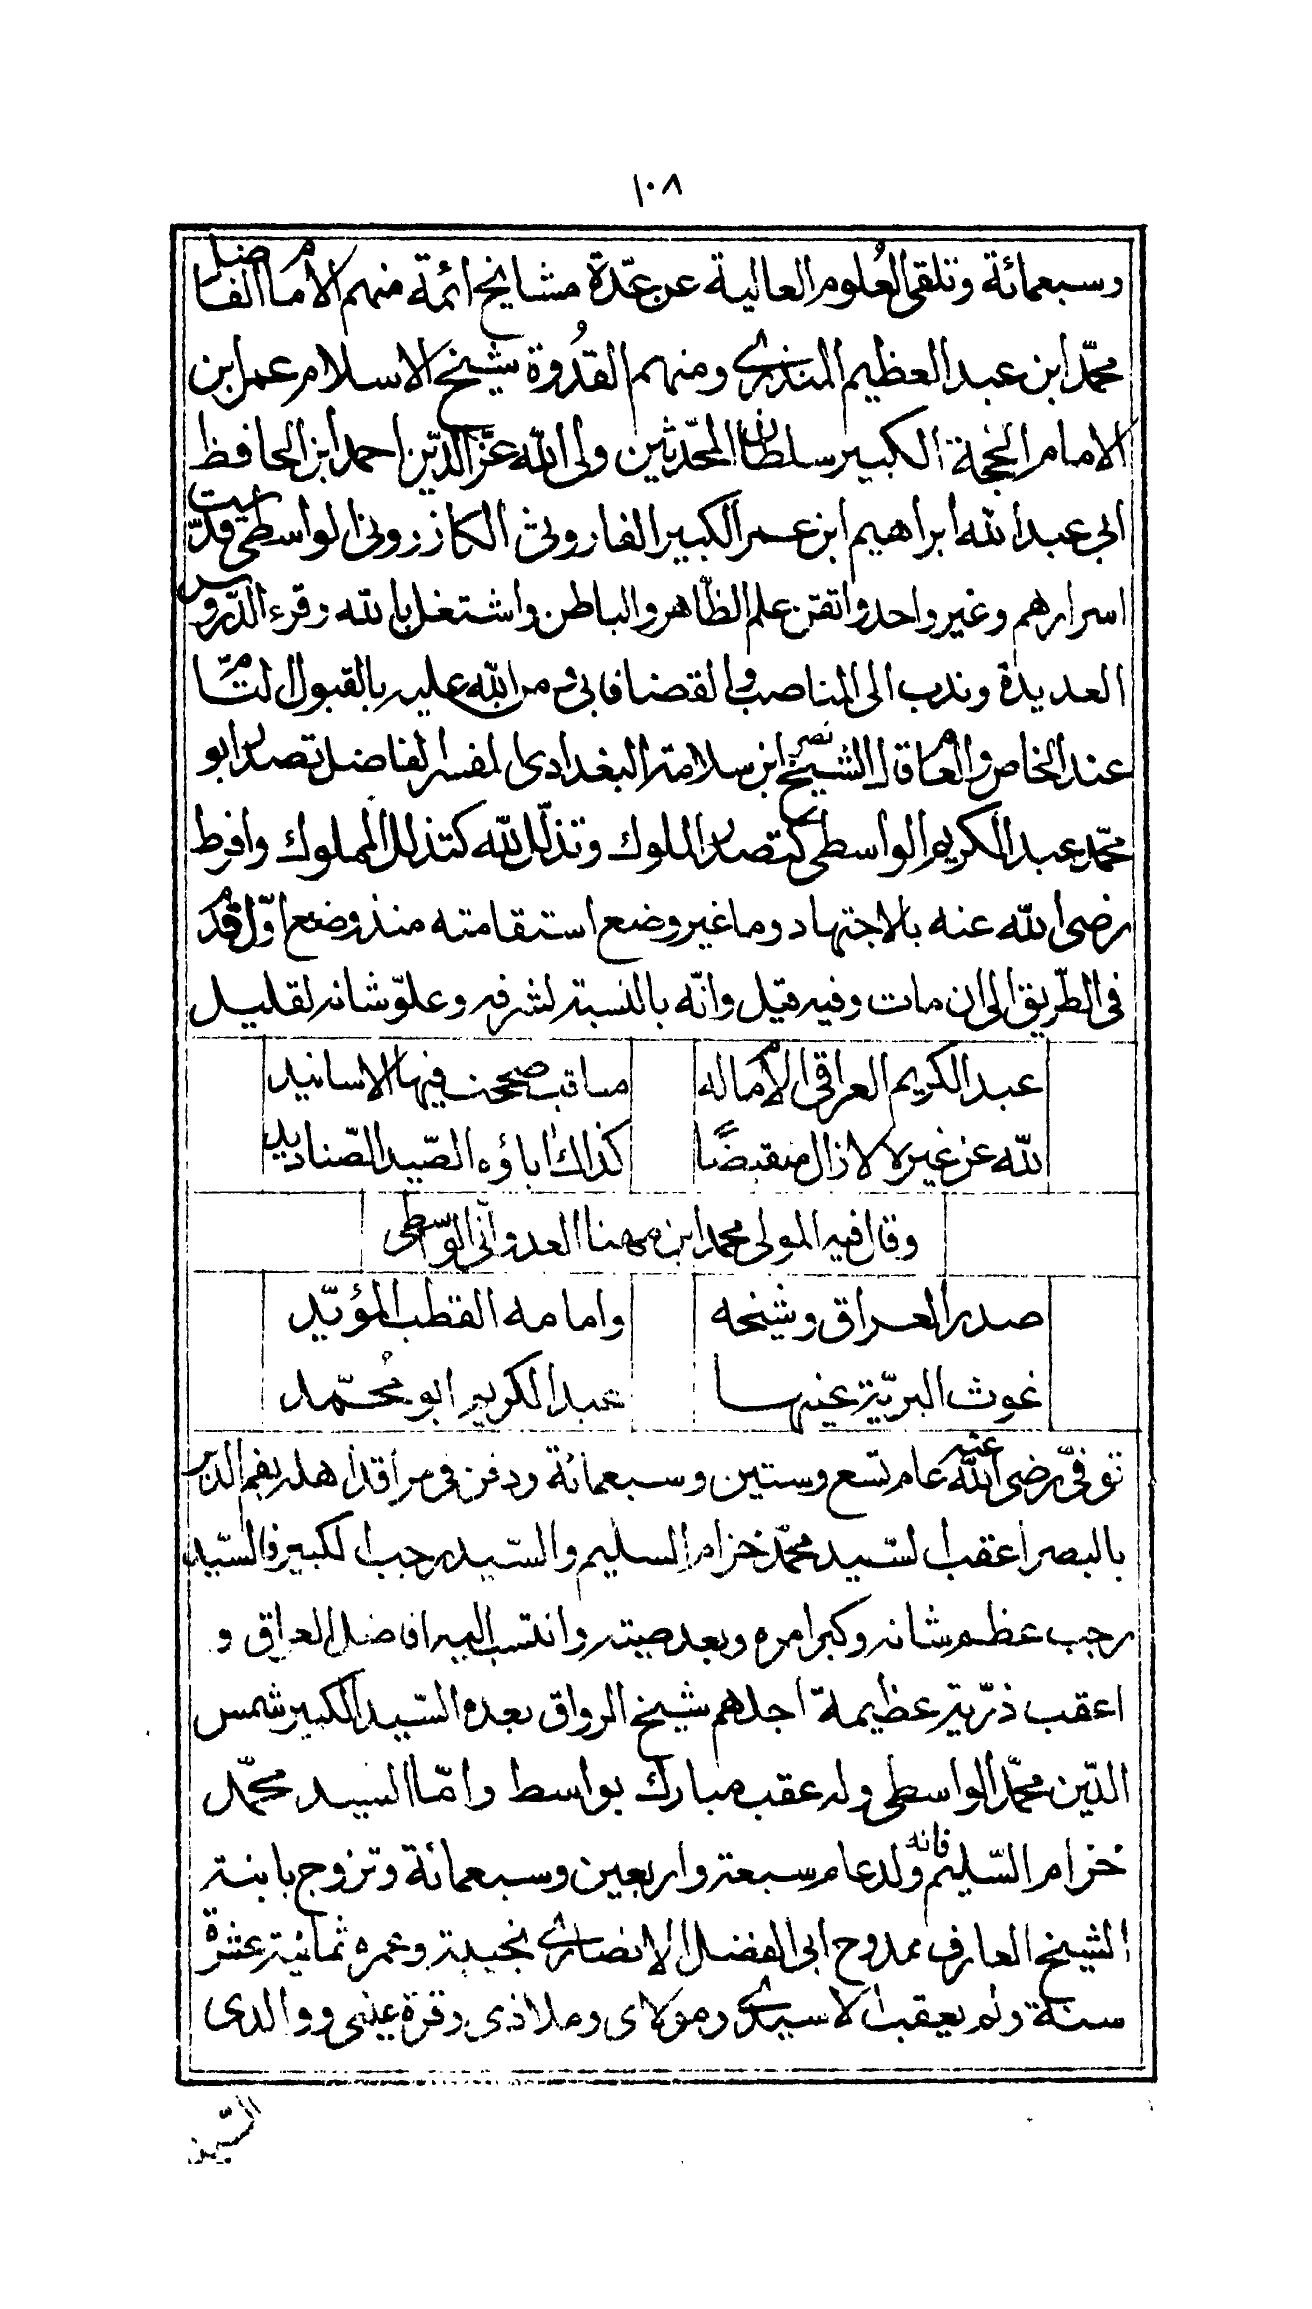 ١٠٨
وسبعمائة وتلقى العُلوم العالية عن عمّدة مشايخ ائمّة منهم الامام الفاضل
محمّد ابن عبد العظيم المنذرى ومنهم القدُوة شيخ الاسلام عمر ابن
الامام الحجة الكبير سلطان المحدّثين ولى الله عزّ الدّين احمد ابن الحافظ
ابى عبد الله ابراهيم ابن عمر الكبير الفاروثى الكازرونى الواسطى قدّست
اسرارهم وغير واحد واتقن علم الظّاهر والباطن واشتغل بالله وقرء الدّروس
العديدة وندب الى المناصب والقضا فابى ومن الله عليه بالقبول التّام
عند الخاص والعام قال الشيخ نصر ابن سلامة البغدادى المفسر الفاضل تصدر ابو
محمّد عبد الكريم الواسطى كتصدر الملوك وتذلّل لله كتذلل المملوك وافرط
رضى الله عنه بالاجتهاد وما غير وضع استقامته منذ وضع اوّل قدم
فى الطّريق الى ان مات وفيه قيل وانّه بالنسبة لشرفه وعلوّ شانه لقليل
عبد الكريم العراقى الامام له مناقب صححت فيها الاسانيد
لله عن غيره لا زال منقبضًا كذاك اباؤه الصّيد الصّناديد
وقال فيه المولى محمد ابن مهنا العدوانّى الواسطى
صدر العراق وشيخه وامامه القطب المؤيّد
غوث البريّة عينها عبد الكريم ابو مُحمّد
توفّى رضى الله عنه عام تسع وستين وسبعمائة ودفن فى مرقد اهله بفم الدير
بالبصرا اعقب السّيد محمّد خزام السليم والسّيد رجب الكبير فالسّيد
رجب عظم شانه وكبر امره وبعد صيته وانتسب اليه افاضل العراق و
اعقب ذرّية عظيمة اجلهم شيخ الرواق بعده السّيد الكبير شمس
الدّين محمّد الواسطى وله عقب مبارك بواسط وامّا السيد محمّد
خزام السّليم فانه ولد عام سبعة واربعين وسبعمائة وتزوج بابنة
الشيخ العارف ممدوح ابى الفضل الانصارى نجيبة وعمره ثمانية عشرة
سنة ولم يعقب الا سيدى ومولاى وملاذى وقرة عينى ووالدى
السّيد